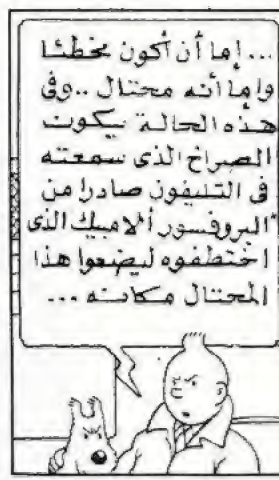 ...إما أن أكون مخطئا
وإما أنه محتال .. وفى
هذه الحالة يكون
الصراخ الذى سمعته
فى التليفون صادرا من
"البروفسور ألامبيك الذى
اختطفوه ليضعوا هذا
المحتال مكانه ...